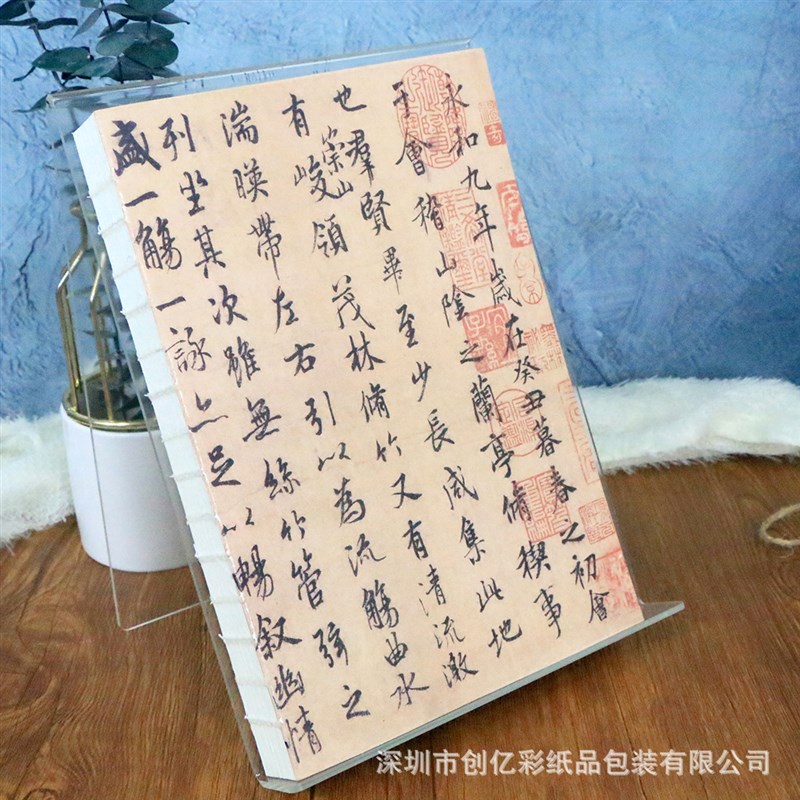 永和九年歲在癸丑暮春之初會
于會稽山陰之蘭亭脩稧事
也羣賢畢至少長咸集此地
有崇山峻領茂林脩竹又有清流激
湍暎帶左右引以為流觴曲水
列坐其次雖無絲竹管弦之
盛一觴一詠亦足以暢叙幽情
深圳市创亿彩纸品包装有限公司